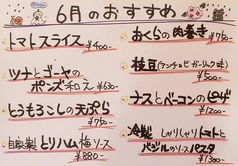 6月のおすすめ
トマトスライス
¥400-
ツナとゴーヤの
ポンズ和え ¥630-
とうもろこしの天ぷら
¥750-
自家製 とりハム 梅ソース
¥880-
おくらの肉巻き
¥750-
枝豆(アンチョビガーリックorト)
¥500-
ナスとベーコンのピザ
¥1200-
冷製 しゃりしゃりトマトと
バジルのソースパスタ
¥1300-